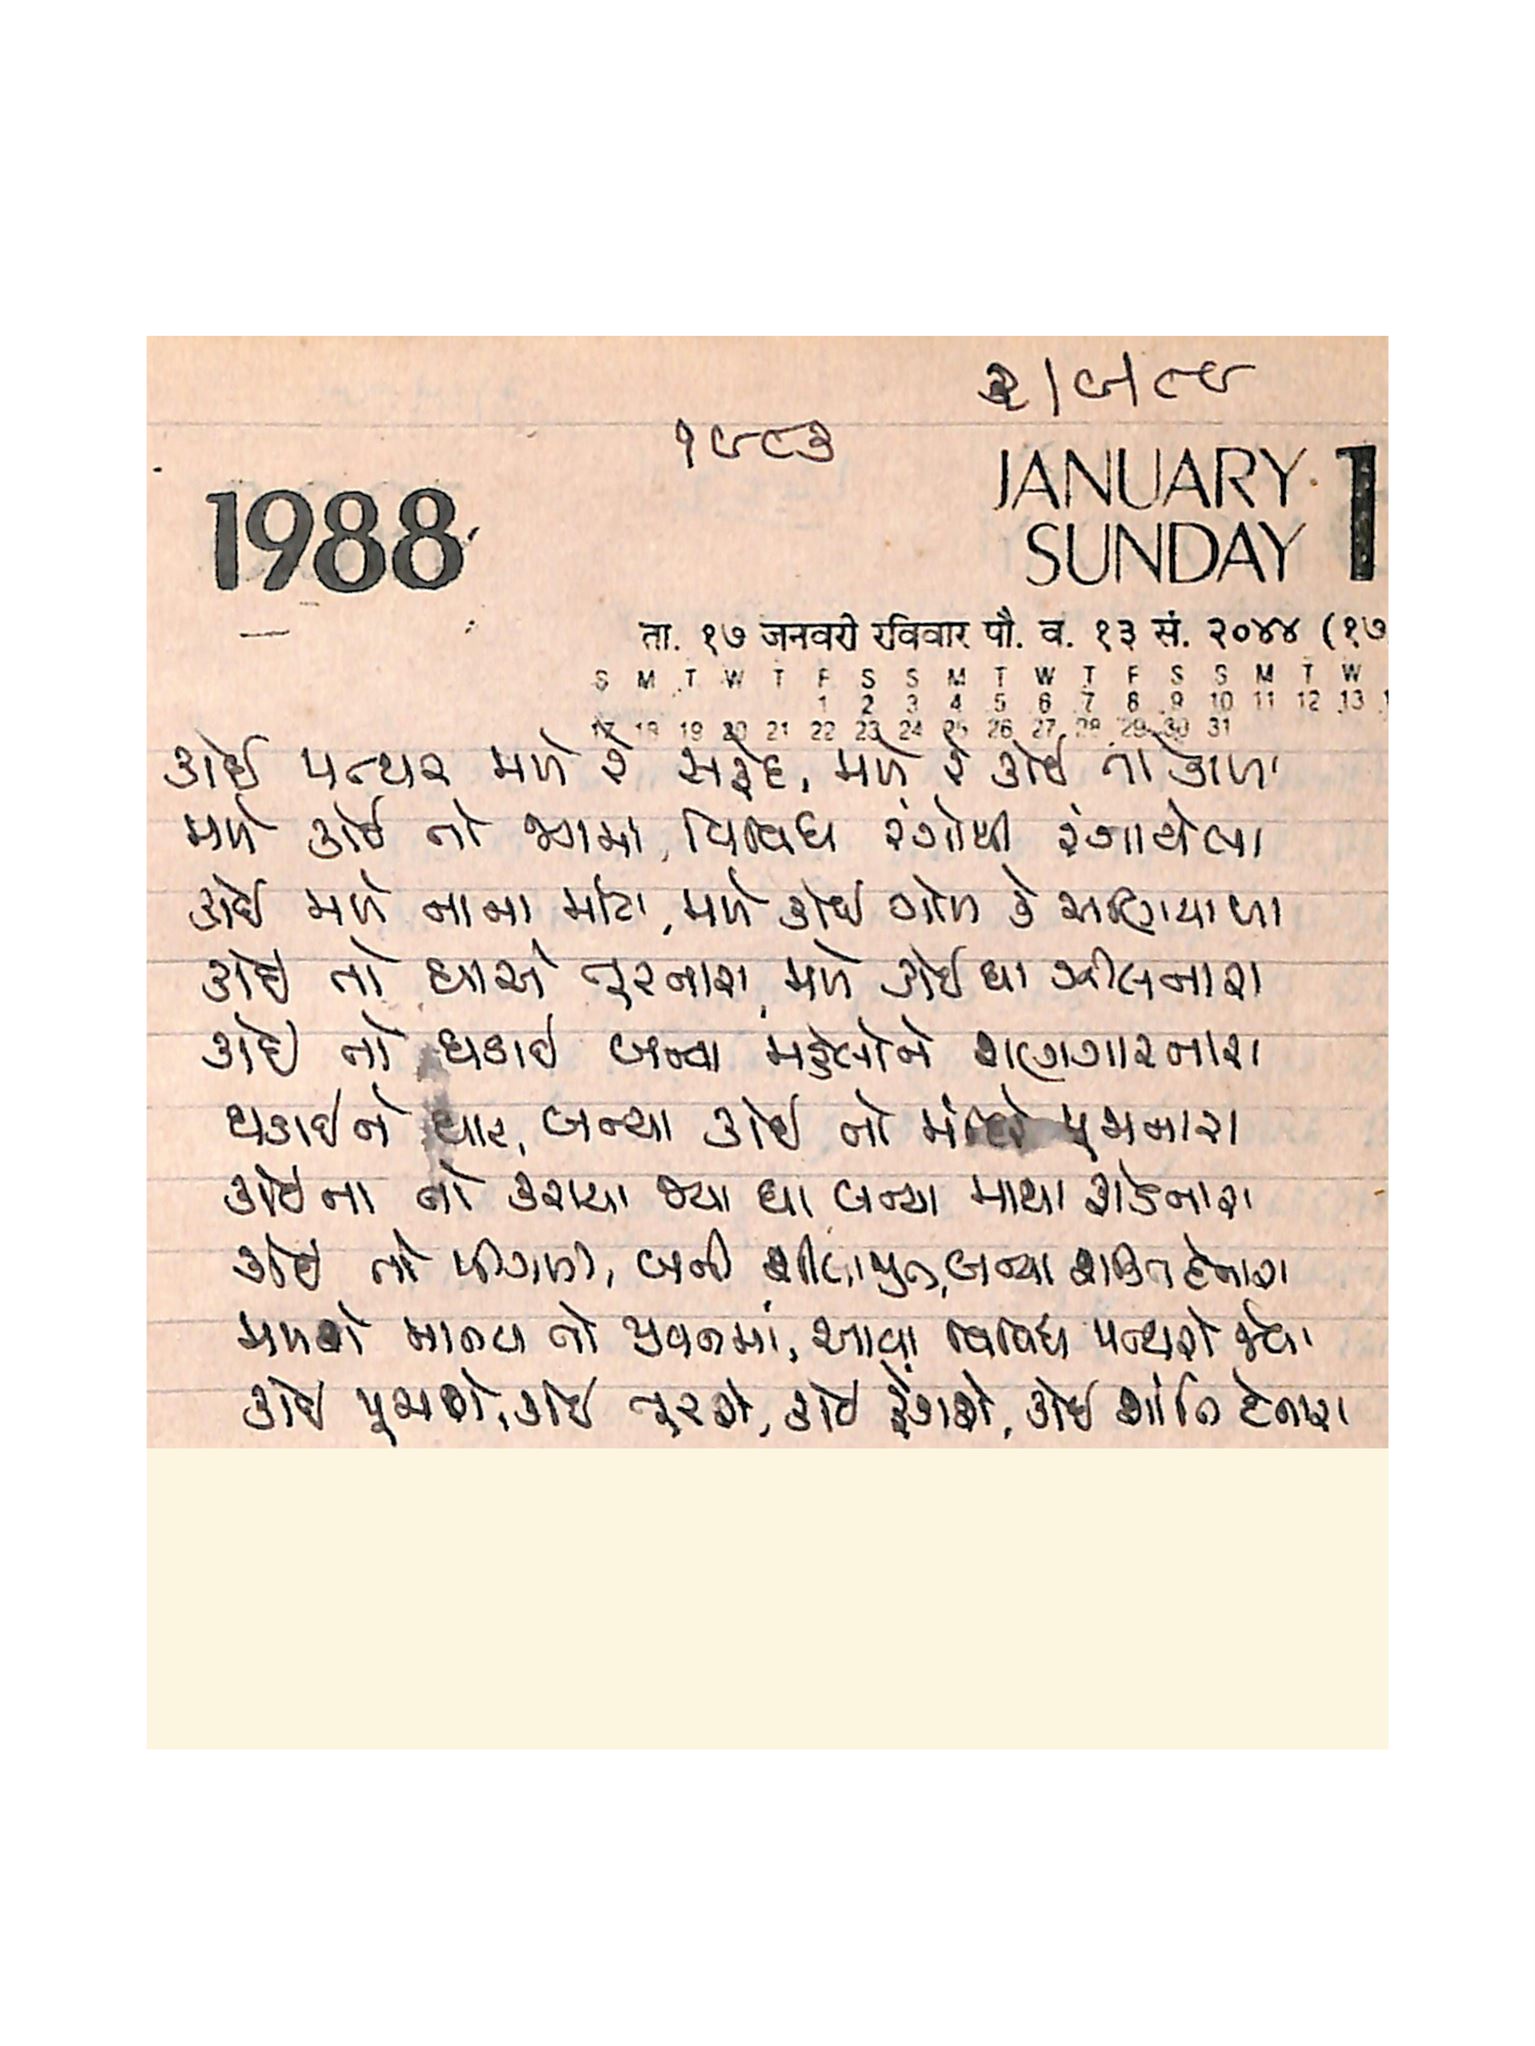 ૨/૯/૮૯
૧૯૮૩
1988
JANUARY 1
SUNDAY
ता. १७ जनवरी रविवार पौ. व. १३ सं. २०४४ (१७
S M T W T F S S M T W T F S S M T W
1 2 3 4 5 6 7 8 9 10 11 12 13
17 18 19 20 21 22 23 24 25 26 27 28 29 30 31
કોઈ પત્થર મળે રે સફેદ, મળે રે કોઈ તો કાળા
મળે કોઈ તો જગમાં, વિવિધ રંગોથી રંગાયેલા
કોઈ મળે નાના મોટા, મળે કોઈ ગોળ કે અણિયાળા
કોઈ તો ઘાએ તૂટનારા, મળે કોઈ ઘા ઝીલનારા
કોઈ તો ઘડાઈ બન્યા મહેલોને શણગારનારા
ઘડાઈને ઘાટ, બન્યા કોઈ તો મંદિરે પૂજાનારા
કોઈના તો કરાયા જ્યા ઘા બન્યા માથા ફોડનારા
કોઈ તો પીગળી, બની શીલાજીત, બન્યા શક્તિ દેનારા
મળશે માનવ તો જીવનમાં, આવા વિવિધ પત્થરો જેવા
કોઈ પૂજાશે, કોઈ તૂટશે, કોઈ ફેંકાશે, કોઈ શાંતિ દેનારા